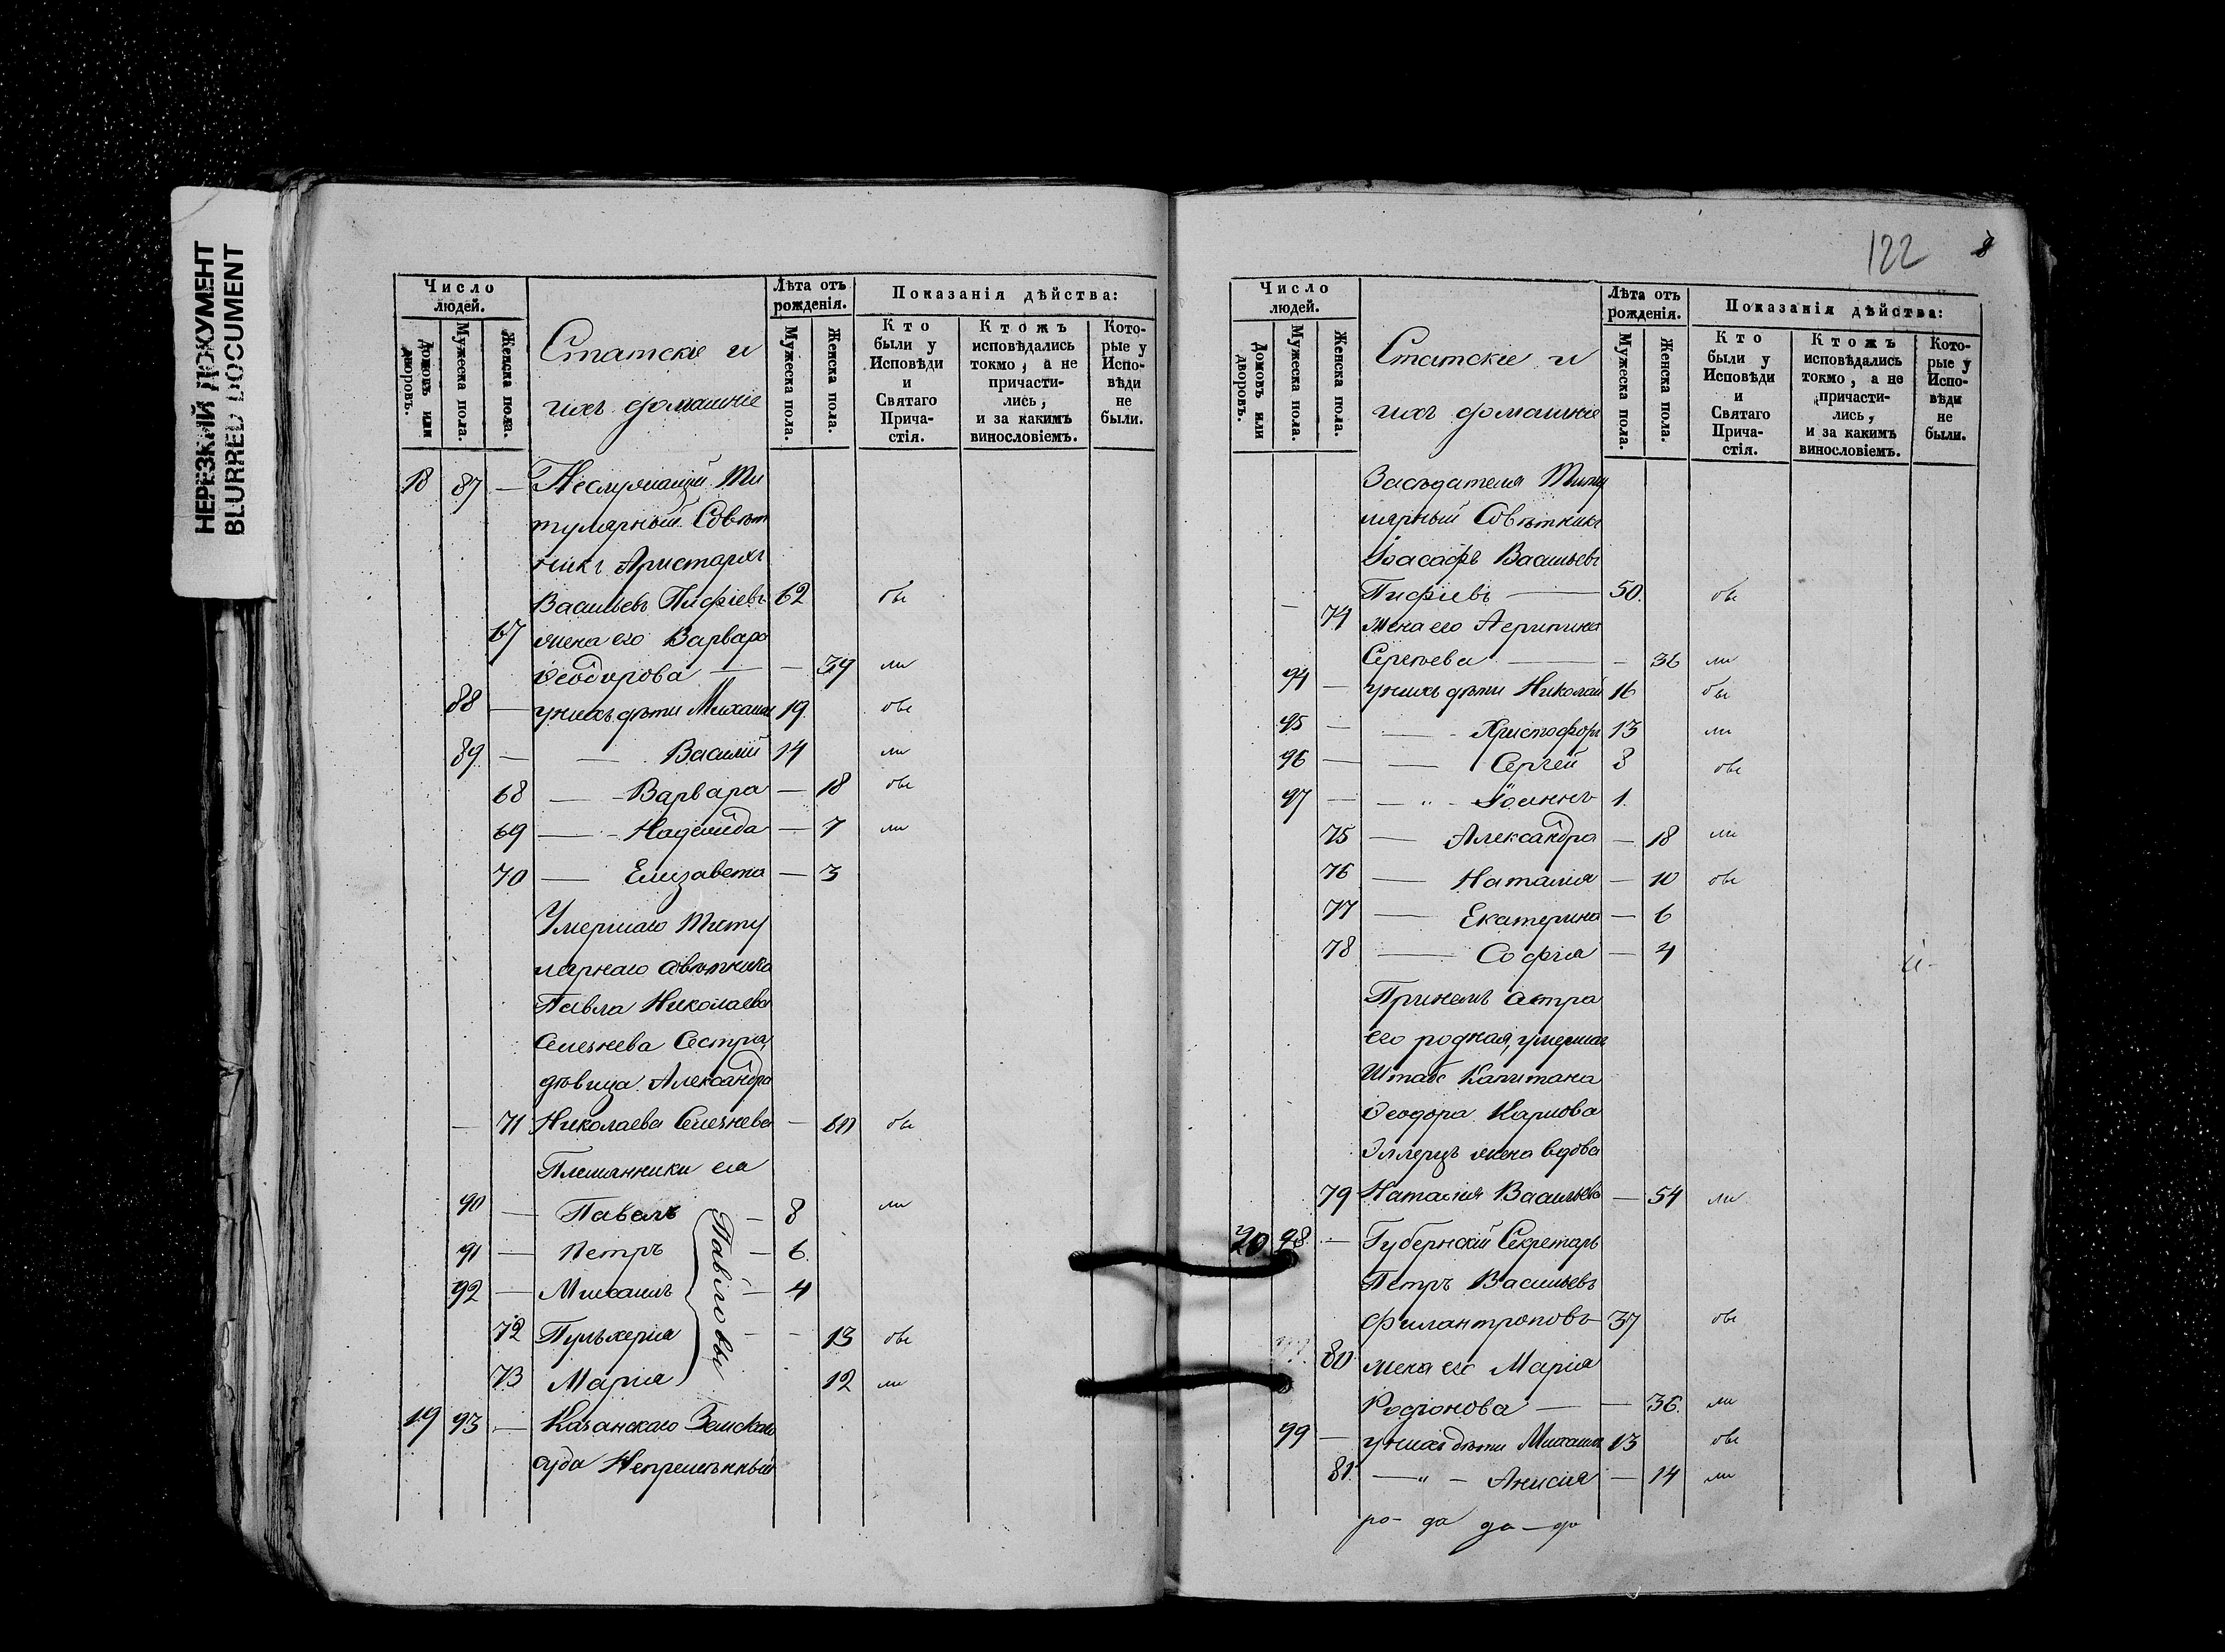 НЕРЕЗКИЙ ДОКУМЕНТ
BLURRED DOCUMENT
Число людей.
Домовъ или дворовъ.
Мужеска пола.
Женска пола.
Статскіе и
ихъ домашніе
Лѣта отъ рожденія.
Мужеска пола.
Женска пола.
Показанія дѣйства:
Кто были у Исповѣди и Святаго Прича-стія.
Ктожъ исповѣдались токмо, а не причасти-лись, и за какимъ винословіемъ.
Кото-рые у Испо-вѣди не были.
18 87 — Неслужащій Ти
тулярный Совѣт
никъ Аристархъ
Васильевъ Пифіевъ 62 бы
67 жена его Варвара
Ѳеодорова — — 39 ли
88 — у нихъ дѣти Михаилъ 19 бы
89 — — Василій 14 ли
68 — Варвара — 18 бы
69 — Надежда — 7 ли
70 — Елизавета — 3
Умершаго Титу
лярнаго совѣтника
Павла Николаева
Селезнева Сестра,
дѣвица Александра
— 71 Николаева Селезнева — 60 бы
Племянники ея
90 — Павелъ — 8 ли
91 — Петръ — 6
92 — Михаилъ — 4
72 Пульхерія — — 13 бы
73 Марія 12 ли
Павловы
19 93 — Казанскаго Земскаго
суда Непремѣнный
122
8
Число людей.
Домовъ или дворовъ.
Мужеска пола.
Женска пола.
Статскіе и
ихъ домашніе
Лѣта отъ рожденія.
Мужеска пола.
Женска пола.
Показанія дѣйства:
Кто были у Исповѣди и Святаго Прича-стія.
Ктожъ исповѣдались токмо, а не причасти-лись, и за какимъ винословіемъ.
Кото-рые у Испо-вѣди не были.
Засѣдателя Титу
лярный Совѣтникъ
Іоасафъ Васильевъ
— Пифіевъ — 50. бы
74 жена его Агрипина
Сергѣева — — 36 ли
94 — у нихъ дѣти Николай 16 бы
95 — — Христофоръ 13 ли
96 — — Сергѣй 8 бы
97 — — „ - Іоаннъ 1.
75 — Александра — 18 ли
76 — Наталія — 10 бы
77 — Екатерина — 6
78 — Софія — 4
При немъ сестра
его родная, умершаг
Штабс Капитана
Ѳеодора Карлова
Эллерцъ жена вдова
79 Наталія Васильева — 54 ли
20 98 — Губернскій Секретарь
Петръ Васильевъ
Филантроповъ 37 бы
80 жена его Марія
Родіонова — — 36. ли
99 — у нихъ дѣти Михаилъ 13 бы
81. — „ - Анисія — 14 ли